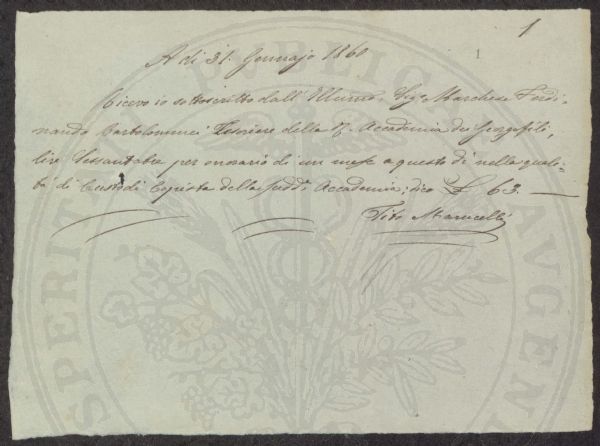 1
1
A di 31. Gennajo 1860
Ricevo io sottoscritto dall' Illumo. Sig. Marchese Ferdi-
nando Bartolommei Tesoriere della R. Accademia dei Georgofili,
lire Sessantatre per onorario di un mese a questo dì nella quali-
tà di Custode Copista della sudd. Accademia, dico £ 63. —
Tito Marucelli
PUBLICA
PROSPERITATI AUGENDAE